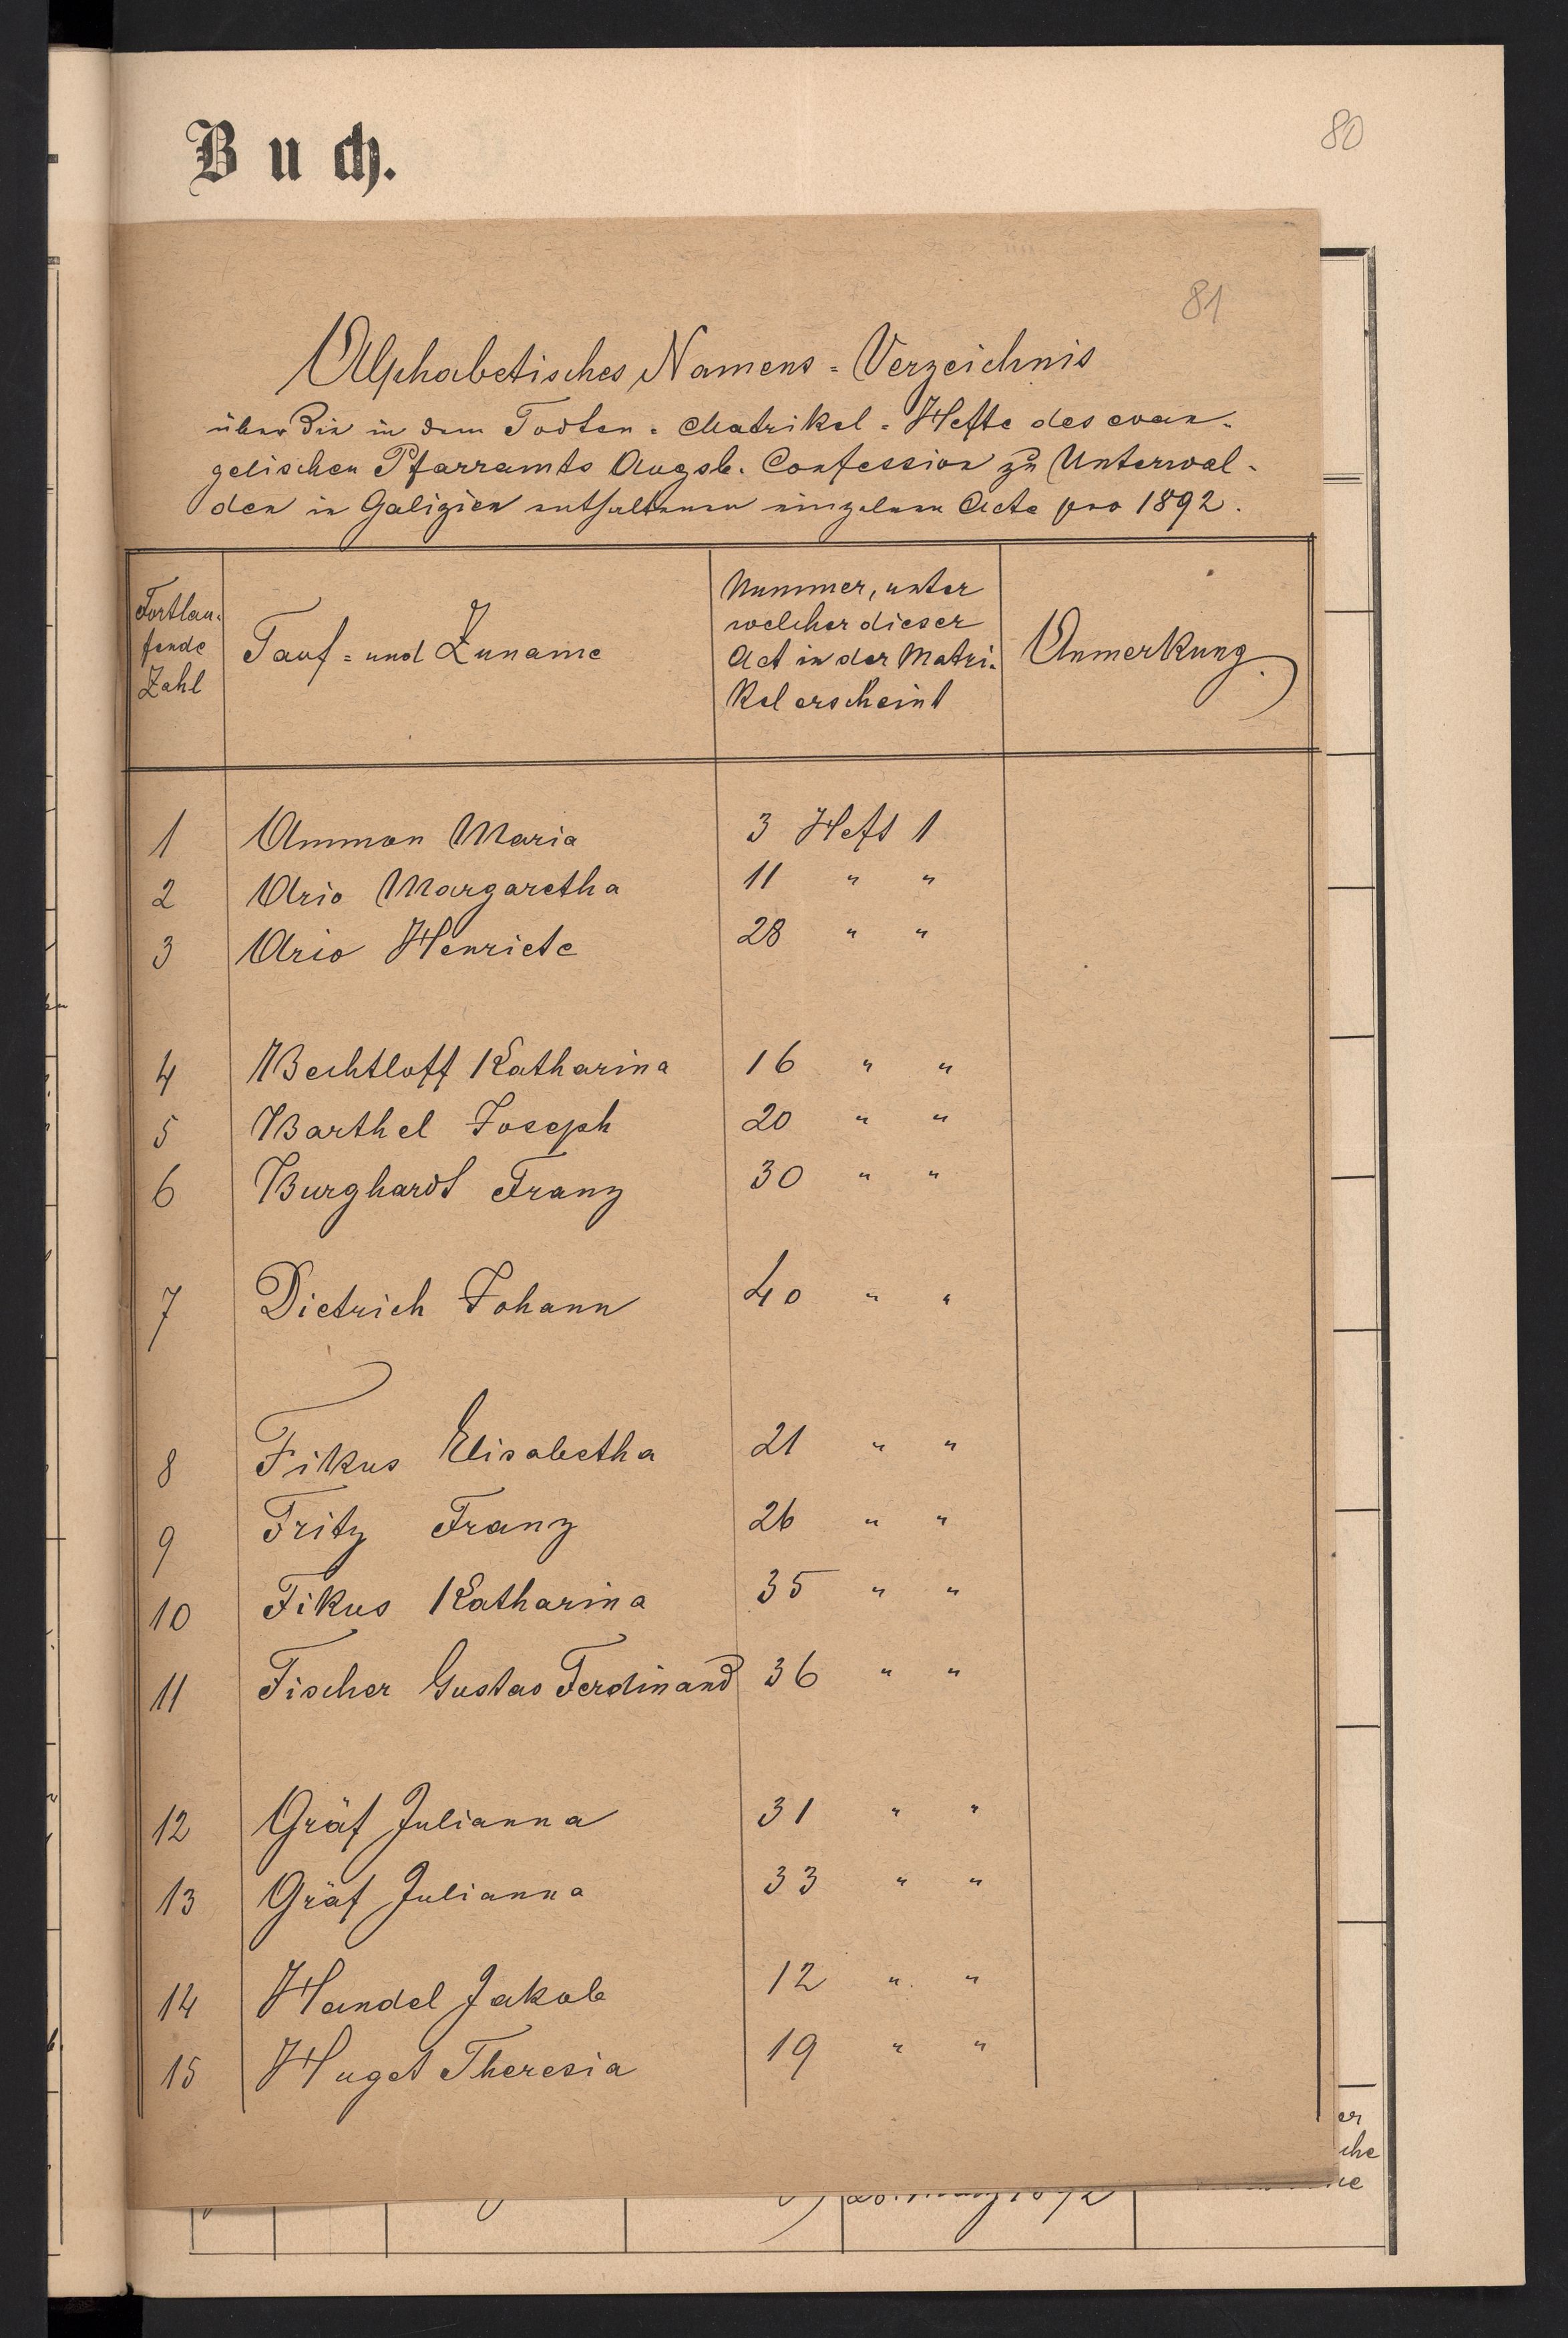 Buch.
80
81
Alphabetisches Namens=Verzeichnis
über die in dem Todten=Matrikel=Hefte des evan-
gelischen Pfarramts Augsb. Confession zu Unterwal-
den in Galizien enthaltenen einzelnen Acte pro 1892.
Fortlau-
fende
Zahl
Tauf=und Zuname
Nummer, unter
welcher dieser
Act in der Matri-
kel erscheint
Anmerkung.
1 Ammon Maria 3 Heft 1
2 Ario Margaretha 11 " "
3 Ario Henriete 28 " "
4 Bechtloff Katharina 16 " "
5 Barthel Joseph 20 " "
6 Burghardt Franz 30 " "
7 Dietrich Johann 40 " "
8 Fikus Elisabetha 21 " "
9 Fritz Franz 26 " "
10 Fikus Katharina 35 " "
11 Fischer Gustav Ferdinand 36 " "
12 Gräf Julianna 31 " "
13 Gräf Julianna 33 " "
14 Handel Jakob 12 " "
15 Huget Theresia 19 " "